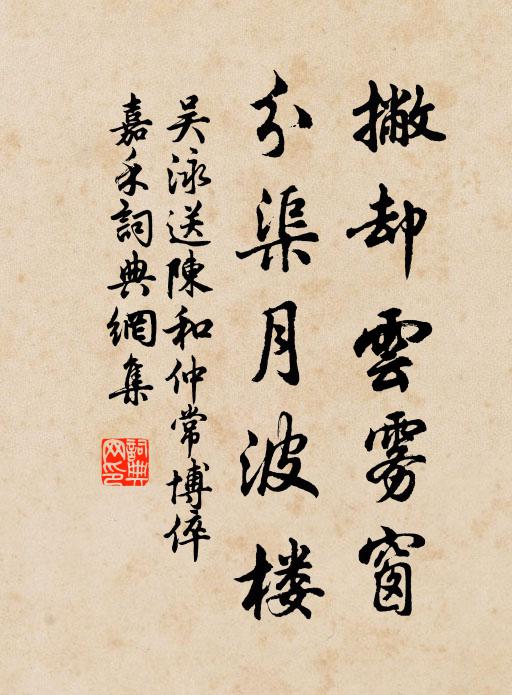 撇却雲雾窗
分渠月波楼
吴泳送陳和仲常博倅
嘉禾詞典網集
詞典网印